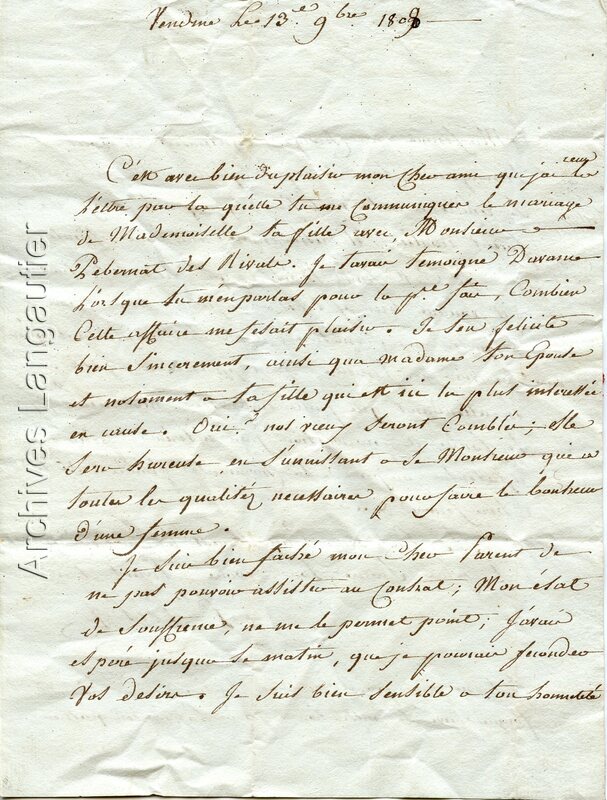 Vendme Le 13.e 9bre 1808
C'est avec bien du plaisir mon Cher ami que j'ai reçu ta
Lettre par la quelle tu me Communiques le mariage
de Mademoiselle ta fille avec Monsieur
Pebernat des Rivals. Je t'avais temoigné Davance
Lorsque tu m'en parlas pour la pre. fois, Combien
Cette affaire me fesait plaisir. Je t'en felicite
bien Sincerement, ainsi que madame ton Epouse
et notament a ta fille qui est ici la plus interessée
en cause. Oui nos vœux Seront Comblés; elle
Sera hureuse en s'unissant a Se Monsieur qui a
toutes les qualitéz necessaires pour faire le bonheur
d'une femme.
Je Suis bien faché mon Cher Parent de
ne pas pouvoir assister au Contrat; Mon état
de Souffrence, ne me le permet point; J'avais
esperé jusque Se matin, que je pourrais Seconder
Vos desirs. Je suis bien sensible a ton honneteté
Archives Langautier